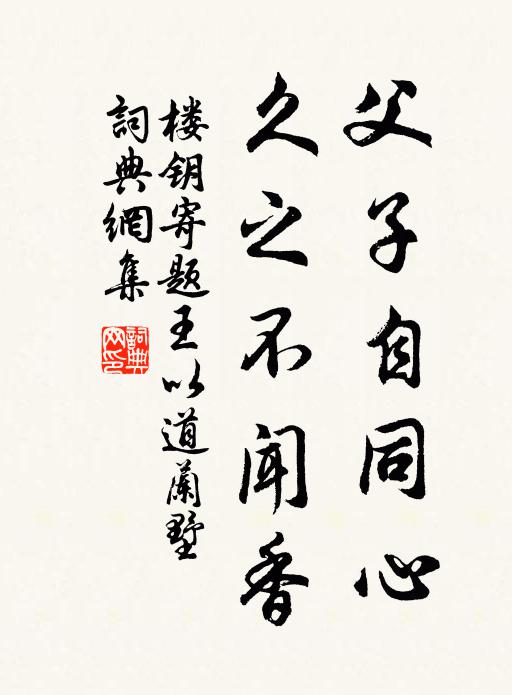 父子自同心
久之不闻香
楼钥寄题王以道蘭墅
詞典網集
詞典
网印